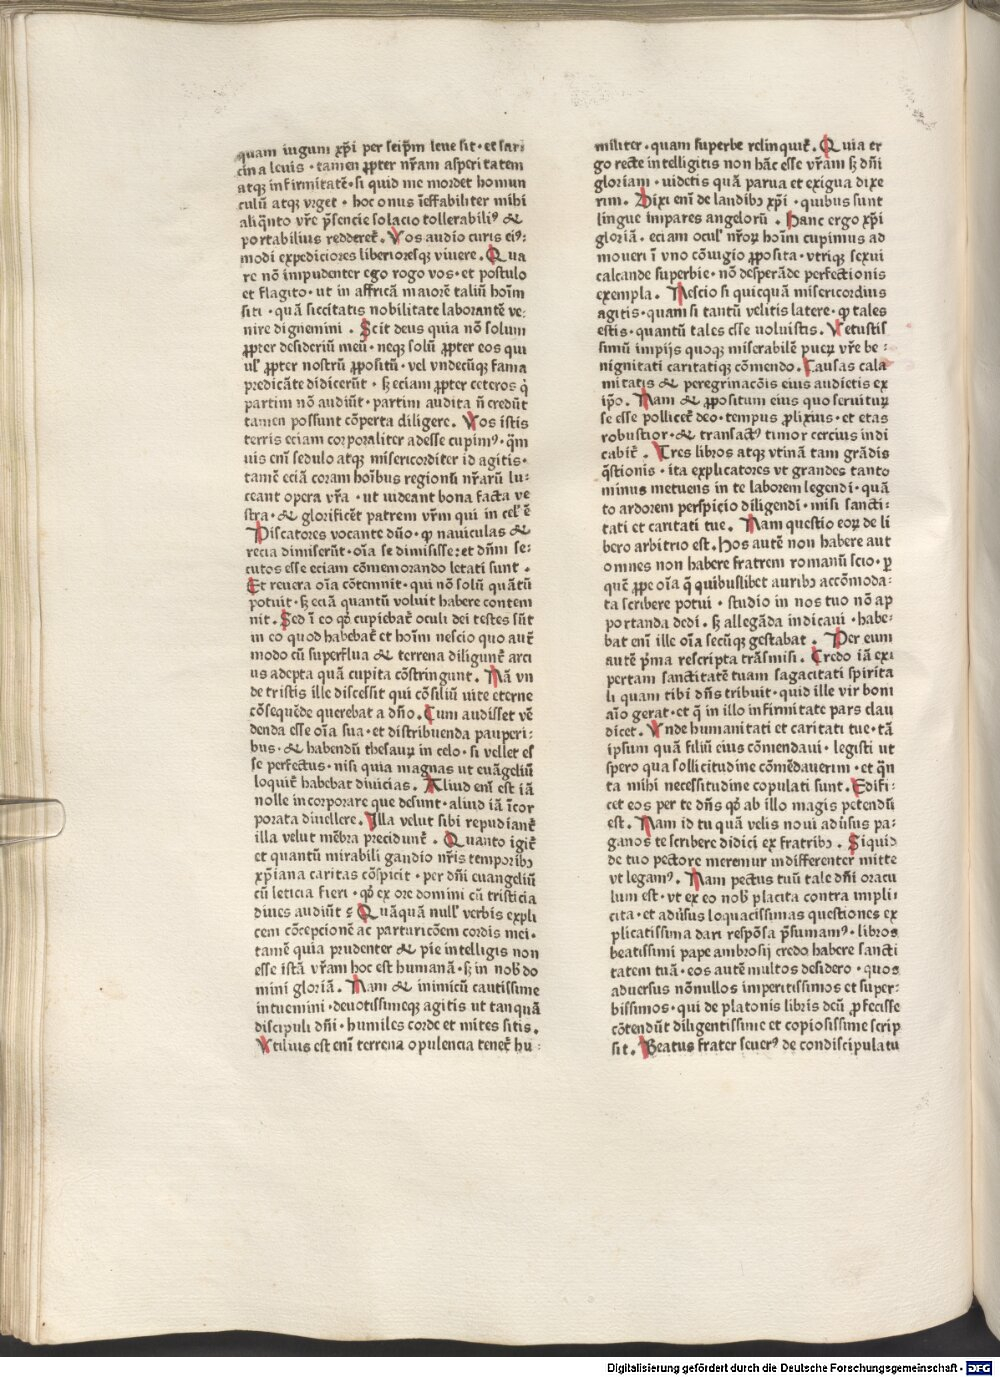 quam iugum xp̄i per seip̄m leue sit · et sari
cina leuis · tamen ꝓpter nr̄am asperitatem
atqꝫ infirmitatē · si quid me mordet homun
culū atqꝫ vrget · hoc onus īeffabiliter mihi
aliq̄nto vr̄e p̄sencie solacio tollerabiliꝰ &
portabilius redderet̄ . Vos audio curis eiꝰ:
modi expediciores liberioresqꝫ viuere . Qua
re nō impudenter ego rogo vos · et postulo
et flagito · ut in affricā maiorē taliū hoīm
siti · quā siccitatis nobilitate laborantē ve:
nire dignemini . Scit deus quia nō solum
ꝓpter desideriū meū · neqꝫ solū ꝓpter eos qui
ul' ꝓpter nostrū ꝓpositū · vel vndecūqꝫ fama
predicāte didicerūt · sꝫ eciam ꝓpter ceteros q̇
partim nō audiūt · partim audita n̄ credūt
tamen possunt cōperta diligere . Vos istis
terris eciam corporaliter adesse cupimꝰ · q̄m
uis enī sedulo atqꝫ misericorditer id agitis ·
tamē eciā coram hoībus regionū nr̄arū lu:
ceant opera vr̄a · ut uideant bona facta ve
stra · & glorificēt patrem vr̄m qui in cel' ē
Piscatores vocante dn̄o · ꝙ nauiculas &
recia dimiserūt · oīa se dimisisse: et dn̄m se:
cutos esse eciam cōmemorando letati sunt .
Et reuera oīa cōtemnit · qui nō solū quātū
potuit · sꝫ eciā quantū voluit habere contem
nit . Sed ī eo qd̄ cupiebat̄ oculi dei testes sūt
in eo quod habebat̄ et hoīm nescio quo aut̄
modo cū superflua & terrena diligunt̄ arci
us adepta quā cupita cōstringunt . Nā vn
de tristis ille discessit qui cōsiliū uite eterne
cōsequēde querebat a dn̄o . Cum audisset vē
denda esse oīa sua · et distribuenda pauperi:
bus · & habendū thesauꝝ in celo · si vellet es
se perfectus · nisi quia magnas ut euāgeliū
loquit̄ habebat diuicias . Aliud enī est iā
nolle incorporare que desunt · aliud iā īcor
porata diuellere . Illa velut sibi repudiant̄
illa velut mēbra precidunt̄ . Quanto igit̄
et quantū mirabili gaudio nr̄is temporibꝫ
xp̄iana caritas cōspicit · per dn̄i euangeliū
cū leticia fieri · qd̄ ex ore domini cū tristicia
diues audiūt ꝭ Quāquā null' verbis expli
cem cōcepcionē ac parturicōem cordis mei ·
tamē quia prudenter & pie intelligis non
esse istā vr̄am hoc est humanā · sꝫ in nob̄ do
mini gloriā . Nam & inimicū cautissime
intuemini · deuotissimeqꝫ agitis ut tanquā
discipuli dn̄i · humiles corde et mites sitis .
Vtilius est enī terrena opulencia tenet̄ hu:
militer · quam superbe relinquit̄ . Quia er
go recte intelligitis non hāc esse vr̄am sꝫ dn̄i
gloriam · uidetis quā parua et exigua dixe
rim . Dixi enī de laudibꝫ xp̄i · quibus sunt
lingue impares angelorū . Hanc ergo xp̄i
gloriā · eciam ocul' nr̄oꝝ hoīm cupimus ad
moueri ī vno cōiugio ꝓposita · vtriqꝫ sexui
calcande superbie · nō desperāde perfectionis
exempla . Nescio si quicquā misericordius
agitis · quam si tantū velitis latere · ꝙ tales
estis · quantū tales esse uoluistis . Vetustis
simū impijs quoqꝫ miserabilē pueꝝ vr̄e be:
nignitati caritatiqꝫ cōmendo . Causas cala
mitatis & peregrinacōis eius audietis ex
ip̄o . Nam & ꝓpositum eius quo seruituꝝ
se esse pollicet̄ deo · tempus ꝓlixius · et etas
robustior · & transactꝰ timor cercius indi
cabit̄ . Tres libros atqꝫ vtinā tam grādis
q̄stionis · ita explicatores vt grandes tanto
minus metuens in te laborem legendi · quā
to ardorem perspicio diligendi · misi sancti:
tati et caritati tue . Nam questio eoꝝ de li
bero arbitrio est . Hos autē non habere aut
omnes non habere fratrem romanū scio · ꝑ
quē ꝓpe oīa q̄ quibuslibet auribꝫ accōmoda:
ta scribere potui · studio in nos tuo nō ap
portanda dedi . sꝫ allegāda indicaui · habe:
bat enī ille oīa secūqꝫ gestabat . Per eum
autē p̄ma rescripta trāsmisi . Credo iā exi
pertam sanctitatē tuam sagacitati spirita
li quam tibi dn̄s tribuit · quid ille vir boni
aīo gerat · et q̄ in illo infirmitate pars clau
dicet . Vnde humanitati et caritati tue · tā
ipsum quā filiū eius cōmendaui · legisti ut
spero qua sollicitudine cōmēdauerim · et q̄n
ta mihi necessitudine copulati sunt . Edifi:
cet eos per te dn̄s qd̄ ab illo magis petendū
est . Nam id tu quā velis noui adūsus pa:
ganos te scribere didici ex fratribꝫ . Siquid
de tuo pectore meremur indifferenter mitte
vt legamꝰ . Nam pectus tuū tale dn̄i oracu
lum est · vt ex eo nob̄ placita contra impli
cita · et adūsus loquacissimas questiones ex
plicatissima dari respōsa p̄sumamꝰ · libros
beatissimi pape ambrosij credo habere sancti
tatem tuā · eos autē multos desidero · quos
aduersus nōnullos imperitissimos et super:
bissimos · qui de platonis libris deū ꝓfecisse
cōtendūt diligentissime et copiosissime scrip
sit . Beatus frater seuerꝰ de condiscipulatu
Digitalisierung gefördert durch die Deutsche Forschungsgemeinschaft - DFG